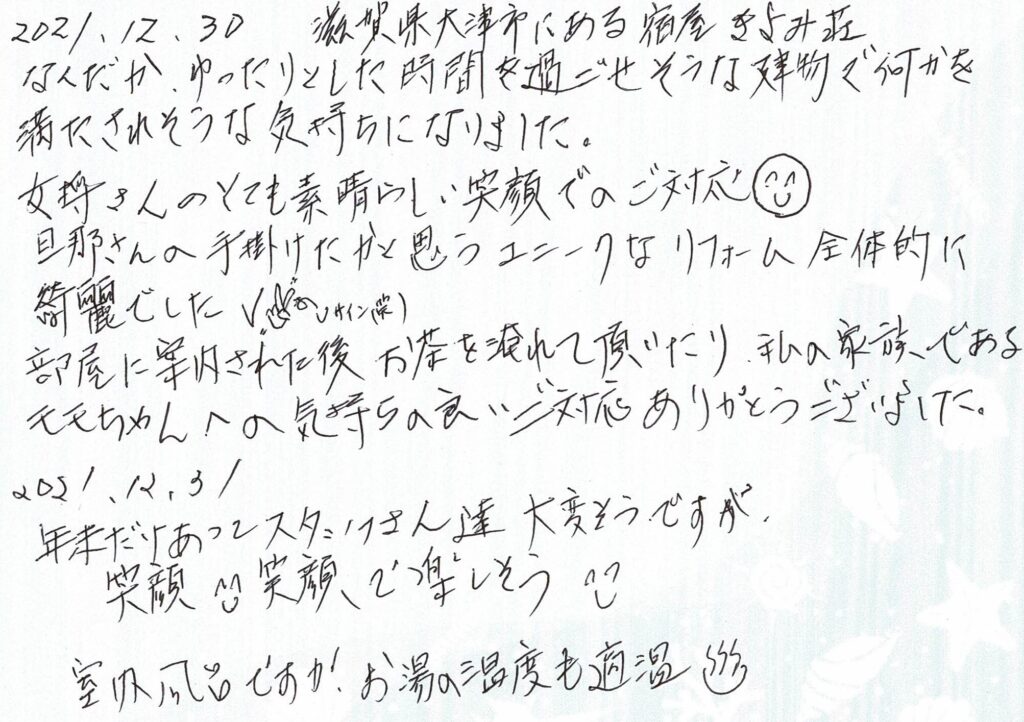 2021.12.30 滋賀県大津市にある宿屋 きよみ荘
なんだか、ゆったりとした時間を過ごせそうな建物で何かを
満たされそうな気持ちになりました。
女将さんのとても素晴らしい笑顔でのご対応
旦那さんの手掛けたかと思うユニークなリフォーム 全体的に
綺麗でした
部屋に案内された後 お茶を淹れて頂いたり、私の家族である
モモちゃんへの気持ちの良いご対応ありがとうございました。
2021.12.31
年末だけあってスタッフさん達 大変そうですが、
笑顔 笑顔、で楽しそう
室内風呂ですが、お湯の温度も適温